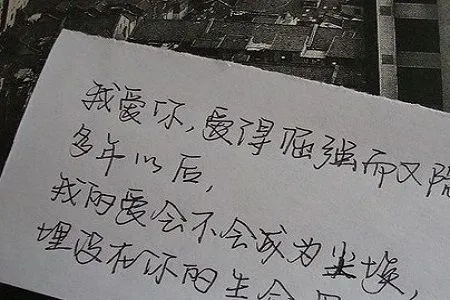 我爱你,爱得倔强而又
多年以后,
我的爱会不会成为尘埃,
埋没在你的生命